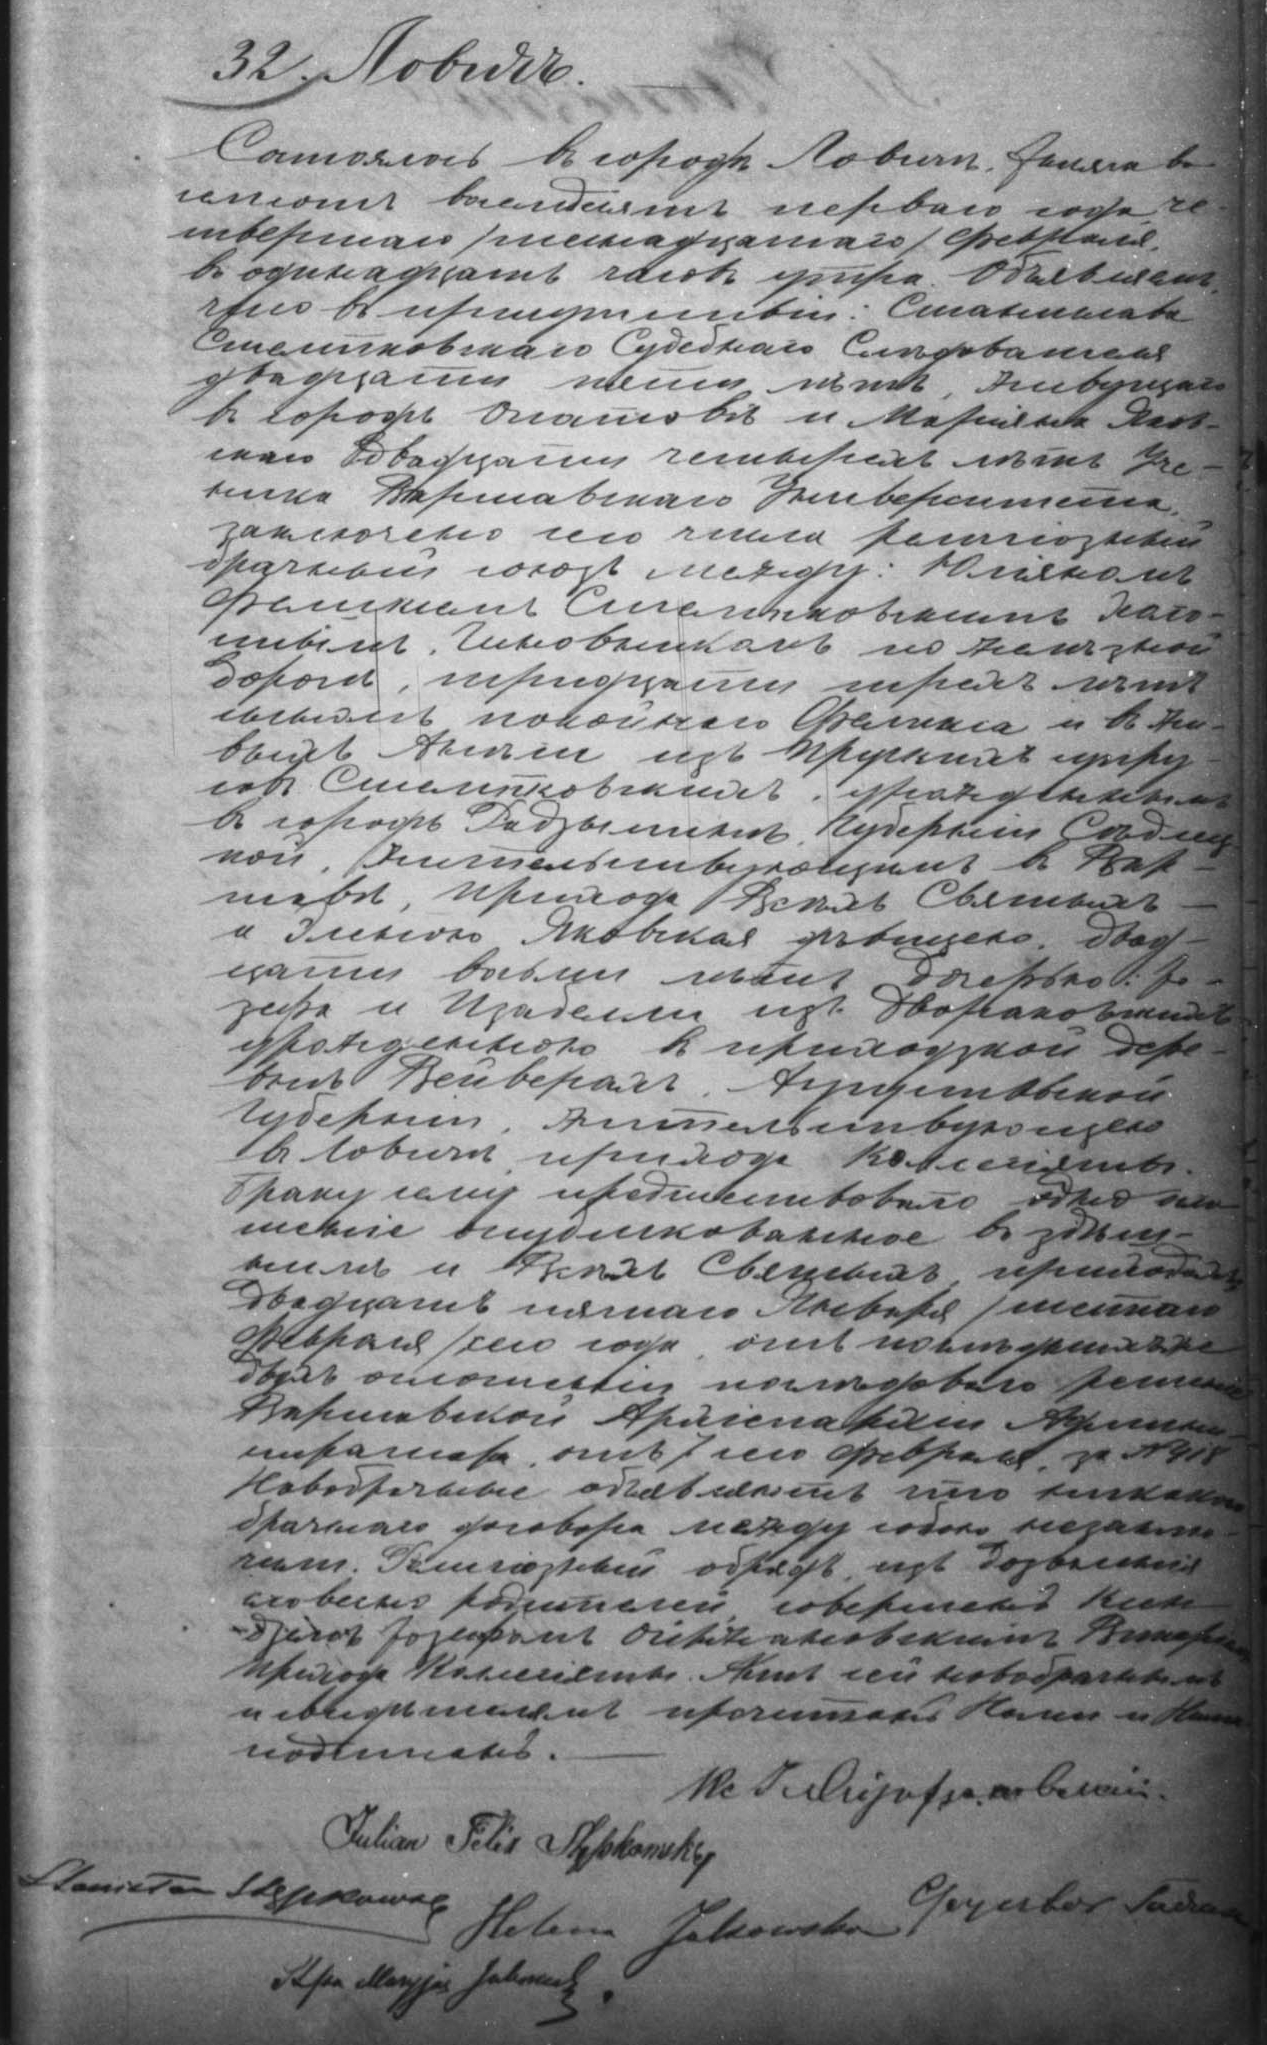 32. Ловичъ.
Состоялось въ городѣ Ловичѣ, тысяча во
семьсотъ восемдесятъ перваго года че-
твертаго /шестнадцатаго/ Февраля,
въ одинадцать часовъ утра. Объявляемъ,
что въ присутствіи: Станислава
Стемпковскаго Судебнаго Слѣдователя
двадцати пяти лѣтъ, живущаго
въ городѣ Опатовѣ и Маріяна Яков-
скаго двадцати четырехъ лѣтъ Уче-
ника Варшавскаго Университета,
заключено сего числа религіозный
брачный союзъ между: Юліяномъ
Феликсомъ Стемпковскимъ
Чиновникомъ по желѣзной
дороги, тридцати трехъ лѣтъ
сыномъ покойнаго Феликса и въ жи-
выхъ изъ супру-
говъ Стемпковскихъ, урожденнымъ
въ городѣ Губерніи Сѣдлец-
кой, жительствующимъ въ Вар-
шавѣ, прихода Всѣхъ Святыхъ —
и Эленою Яковская дѣвицею, двад-
цати восьми лѣтъ дочерью: Іо-
зефа и Изабелли изъ Двораковскихъ
урожденною въ приходской дере-
внѣ Вейверахъ, Августовской
Губерніи, жительствующею
въ Ловичѣ, прихода Коллегіяты.
Браку сему предшествовало одно огла-
шеніе опубликованное въ здѣш-
немъ и Всѣхъ Святыхъ, приходахъ
двадцать пятаго Января /шестаго
Февраля/ сего года, отъ послѣднихъ же
двухъ оглашеній послѣдовало решеніе
Варшавской Архіепархіи Админи-
стратора, отъ 7 сего Февраля, за №918
Новобрачные объявляютъ что никакого
брачнаго договора между собою незаклю-
чили. Религіозный обрядъ, изъ дозволенія
словесно родителей, совершенъ Ксен-
дзомъ Іозефомъ Викаріемъ
прихода Коллегіяты. Актъ сей новобрачнымъ
и свидѣтелямъ прочитанъ Нами и Ими
подписанъ. —
Julian Felix Stępkowski
Stanisław Stępkowski
Helena Jakowska